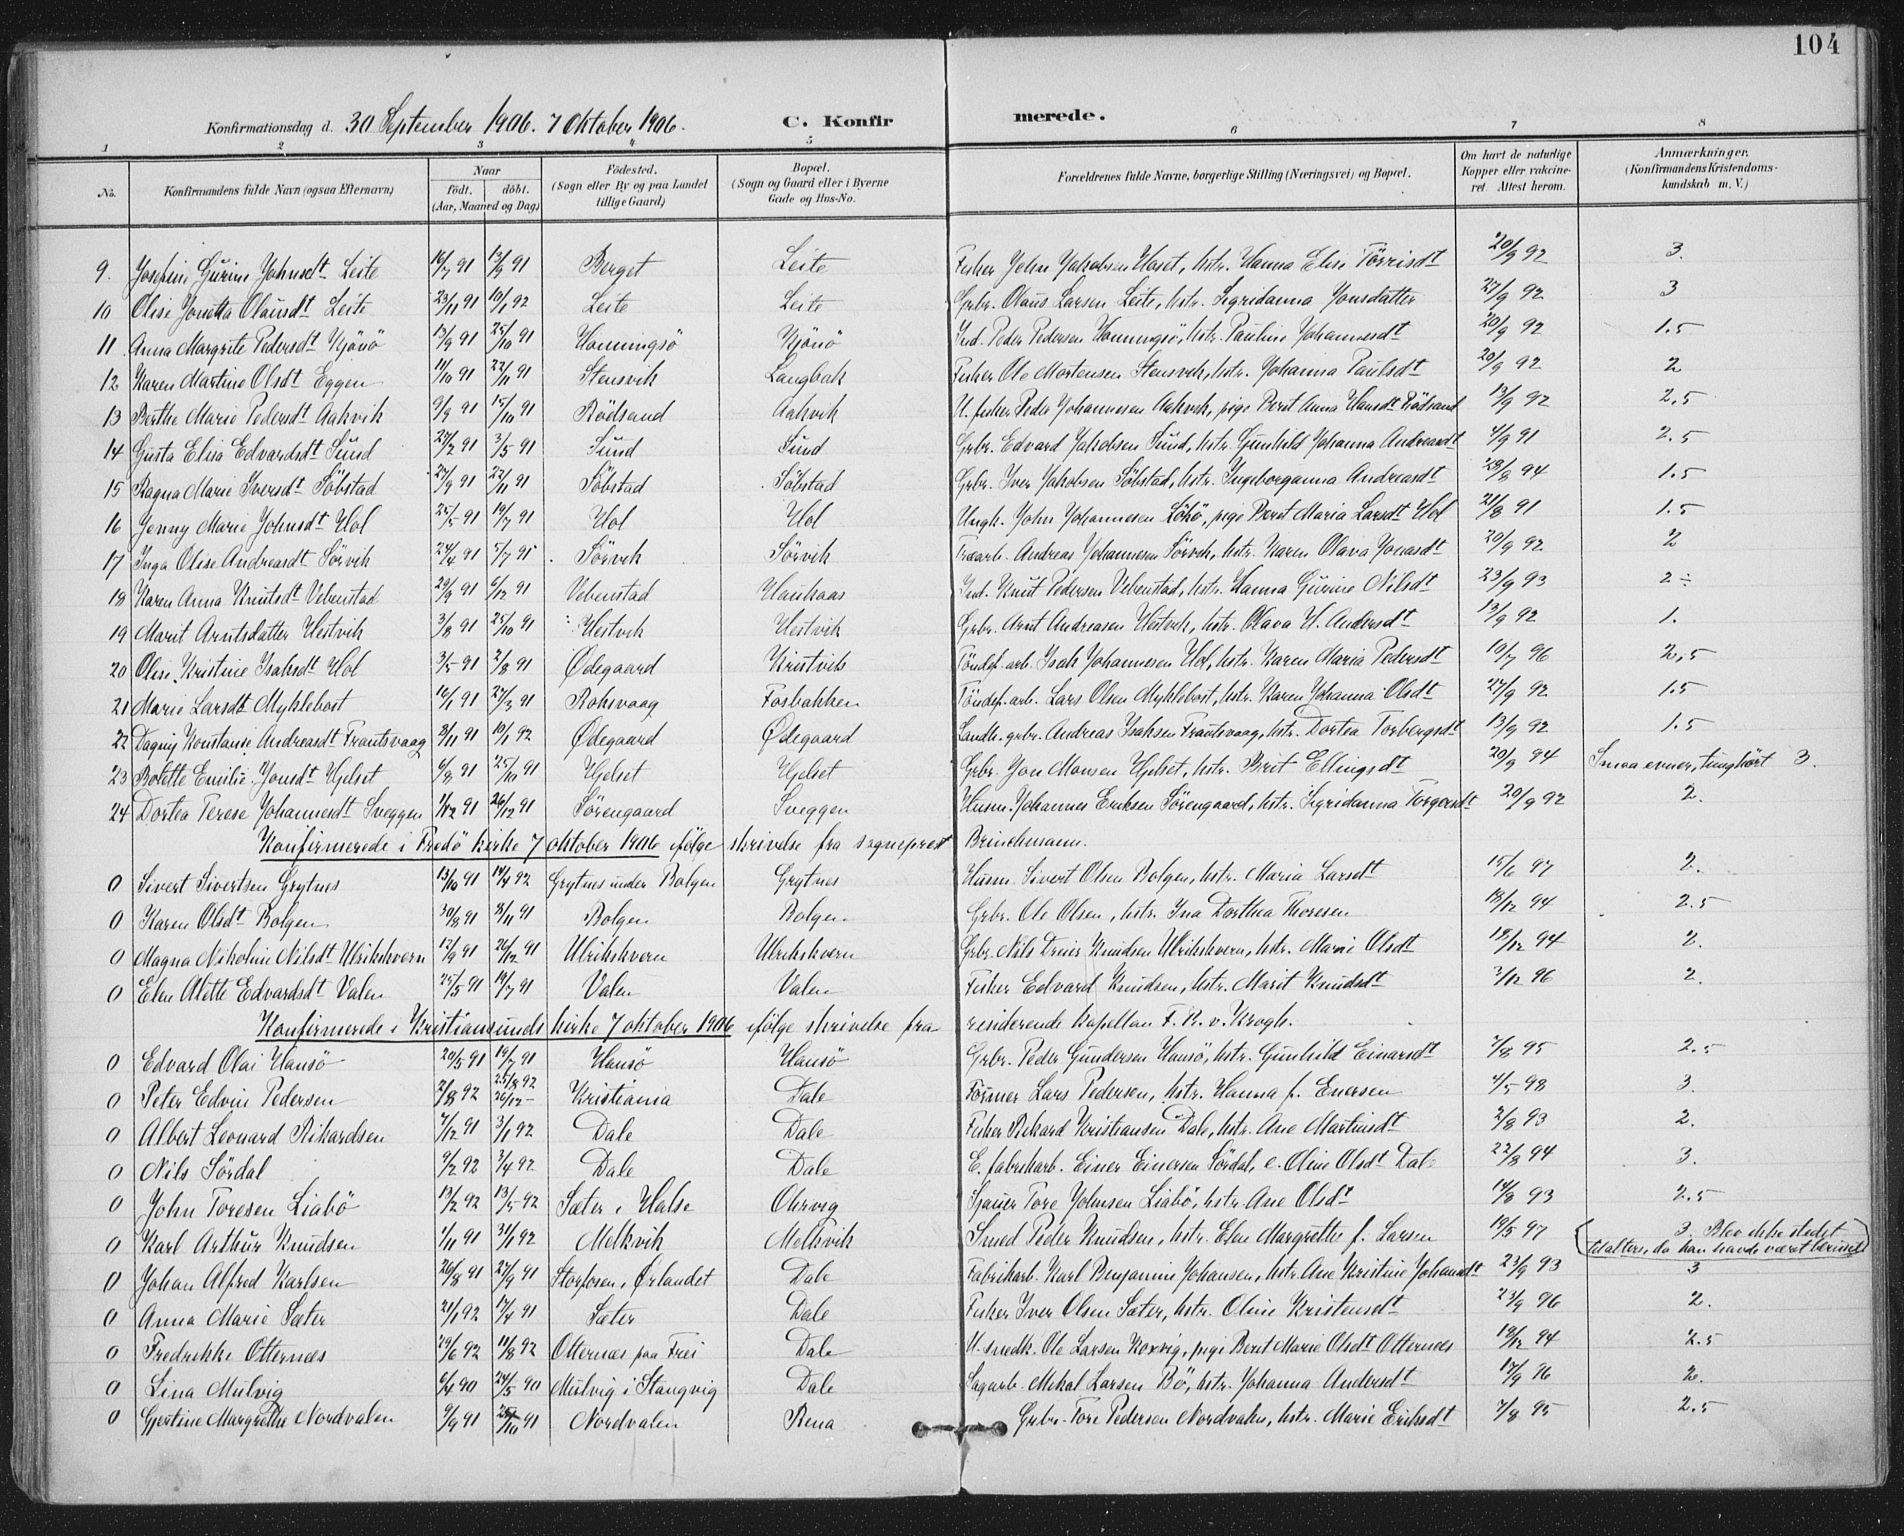 104
Konfirmationsdag d. 30 September 1906. 7 Oktober 1906. C. Konfir merede.
1 2 3 4 5 6 7 8
No. Konfirmandens fulde Navn (ogsaa Efternavn) Naar født. døbt. (Aar, Maaned og Dag) Fødested. (Sogn eller By og paa Landet tillige Gaard) Bopæl. (Sogn og Gaard eller i Byerne Gade og Hus-No. Forældrenes fulde Navne, borgerlige Stilling (Næringsvei) og Bopæl. Om havt de naturlige Kopper eller vakcineret. Attest herom. Anmærkninger. (Konfirmandens Kristendomskundskab m. V.)
9. Josefine Gurine Johnsdt Leite 16/7 91 13/9 91 Berget Leite Fisker John Jakobsen Uoset, hstr. Hanna Elise Tørrisdt 20/9 92 3.
10 Olise Jonetta Olausdt Leite 23/11 91 10/1 92 Leite Leite Grbr. Olaus Larsen Leite, hstr. Sigridanna Jonsdatter 27/9 92 3
11 Anna Margrete Pedersdt Kjönö 13/9 91 25/10 91 Honningsö Kjönö Ind. Peder Pedersen Honningsö, hstr. Pauline Johannesdt 20/9 92 1.5
12 Karen Martine Olsdt Eggen 11/10 91 22/11 91 Stensvik Langbak Fisker Ole Mortensen Stensvik, hstr. Johanna Paulsdt 20/9 92 2
13 Berthe Marie Pedersdt Aakvik 9/9 91 15/10 91 Rödsand Aakvik U. fisker Peder Johannesen Aakvik, pige Berit Anna Hansdt Rödsand 13/9 92 2.5
14 Gusta Elisa Edvardsdt Sund 27/2 91 3/5 91 Sund Sund Grbr. Edvard Jakobsen Sund, hstr. Gunhild Johanna Andreasdt 4/9 91 2.5
15 Ragna Marie Iversdt Söbstad 27/9 91 22/11 91 Söbstad Söbstad Grbr. Iver Jakobsen Söbstad, hstr. Ingeborganna Andreasdt 28/8 94 1.5
16 Jenny Marie Johnsdt Hol 25/5 91 19/7 91 Hol Hol Ungk. John Johannesen Lökö, pige Berit Maria Larsdt Hol 21/8 91 1.5
17 Inga Olise Andreasdt Sörvik 24/4 91 5/7 91 Sörvik Sörvik Træarb. Andreas Johannesen Sörvik, hstr. Karen Olava Jonasdt 20/9 92 2
18 Karen Anna Knutsdt Vebenstad 29/9 91 6/12 91 Vebenstad Haukaas Ind. Knut Pedersen Vebenstad, hstr. Hanna Gurine Nilsdt 23/9 93 2÷
19 Marit Arntsdatter Hestvik 3/8 91 25/10 91 Hestvik Hestvik Grbr. Arnt Andreasen Hestvik, hstr. Olava H. Andersdt 13/9 92 1.
20 Olise Kristine Isaksdt Hol 3/5 91 2/8 91 Ødegaard Kristvik Töndef. arb. Isak Johannesen Hol, hstr. Karen Maria Pedersdt 10/7 96 2,5
21 Marie Larsdt Myklebost 16/1 91 27/3 91 Roksvaag Fosbakken Töndef. arb. Lars Olsen Myklebost, hstr. Karen Johanna Olsdt 27/9 92 1.5
22 Dagny Konstanse Andreasdt Frantsvaag 8/11 91 10/1 92 Ødegaard Ødegaard Landh. grbr. Andreas Isaksen Frantsvaag, hstr. Dortea Torbergsdt 13/9 92 1.5
23 Bolette Emilie Jonsdt Hjelset 6/8 91 25/10 91 Hjelset Hjelset Grbr. Jon Monsen Hjelset, hstr. Brit Ellingsdt 20/9 94 Smaa evner, tunghørt 3.
24 Dortea Terese Johannesdt Sveggen 1/12 91 26/12 91 Sörengaard Sveggen Husm. Johannes Eriksen Sörengaard, hstr. Sigridanna Torgersdt 20/9 92 2.
Konfirmerede i Fredö kirke 7 oktober 1906 ifölge skrivelse fra sogneprest Brinchmann.
0 Sivert Sivertsen Grytnes 13/10 91 14/4 92 Grytnes under Bolgen Grytnes Husm. Sivert Olsen Bolgen, hstr. Maria Larsdt 15/6 97 2.
0 Karen Olsdt Bolgen 30/8 91 8/11 91 Bolgen Bolgen Grbr. Ole Olsen, hstr. Ina Dorthea Thoresen 18/12 94 2.5
0 Magna Nikoline Nilsdt Ulrikskvern 12/9 91 26/12 91 Ulrikskvern Ulrikskvern Grbr. Nils Dreier Knudsen Ulrikskvern, hstr. Marie Olsdt 18/12 94 2.
0 Elen Alette Edvardsdt Valen 25/5 91 19/7 91 Valen Valen Fisker Edvard Knudsen, hstr. Marit Knudsdt 3/12 96 2.
Konfirmerede i Kristiansunds kirke 7 oktober 1906 ifölge skrivelse fra residerende kapellan F. R. v. Krogh.
0 Edvard Olai Hansö 20/5 91 19/7 91 Hansö Hansö Grbr. Peder Gundersen Hansö, hstr. Gunhild Einarsdt 7/8 95 2.5
0 Peter Edvin Pedersen 2/8 92 25/8 92 26/12 – Kristiania Dale Formier Lars Pedersen, hstr. Hanna f. Enersen 4/5 98 3.
0 Albert Leonard Rikardsen 7/12 91 3/1 92 Dale Dale Fisker Rikard Kristiansen Dale, hstr. Ane Martinsdt 2/8 93 2.
0 Nils Sördal 9/2 92 3/4 92 Dale Dale E. fabrikarb. Einer Einersen Sördal, e. Oline Olsdt Dale 22/8 94 3.
0 John Toresen Liabö 13/2 92 13/5 92 Sæter i Halse Ohrvig Sjauer Tore Johnsen Liabö, hstr. Ane Olsdt 14/8 93 2.5
0 Karl Arthur Knudsen 1/11 91 31/1 92 Melkvik Melkvik Smed Peder Knudsen, hstr. Elen Margrethe f. Larsen 19/5 97 3. Blev ikke stedet tilalters, da han havde været beruset
0 Johan Alfred Karlsen 26/8 91 27/9 91 Storfosen, Ørlandet Dale Fabrikarb. Karl Benjamin Johansen, hstr. Ane Kristine Johansdt 23/9 93 3
0 Anna Marie Sæter 21/1 92 17/4 91 Sæter Dale Fisker Iver Olsen Sæter, hstr. Oline Kristensdt 23/9 96 2.
0 Fredrikke Otternes 29/6 92 14/8 92 Otternes paa Frei Dale U. snedk. Ole Larsen Korsvig, pige Berit Marie Olsdt Otternes 18/12 94 2.5
0 Lina Mulvig 6/4 90 24/5 90 Mulvig i Stangvig Dale Sagarb. Mikal Larsen Bö, hstr. Johanna Andersdt 17/9 96 2.
0 Gjertine Margrethe Nordvalen 9/9 91 25/10 91 Nordvalen Rena Grbr. Tore Pedersen Nordvalen, hstr. Marie Eriksdt 7/8 95 2.5